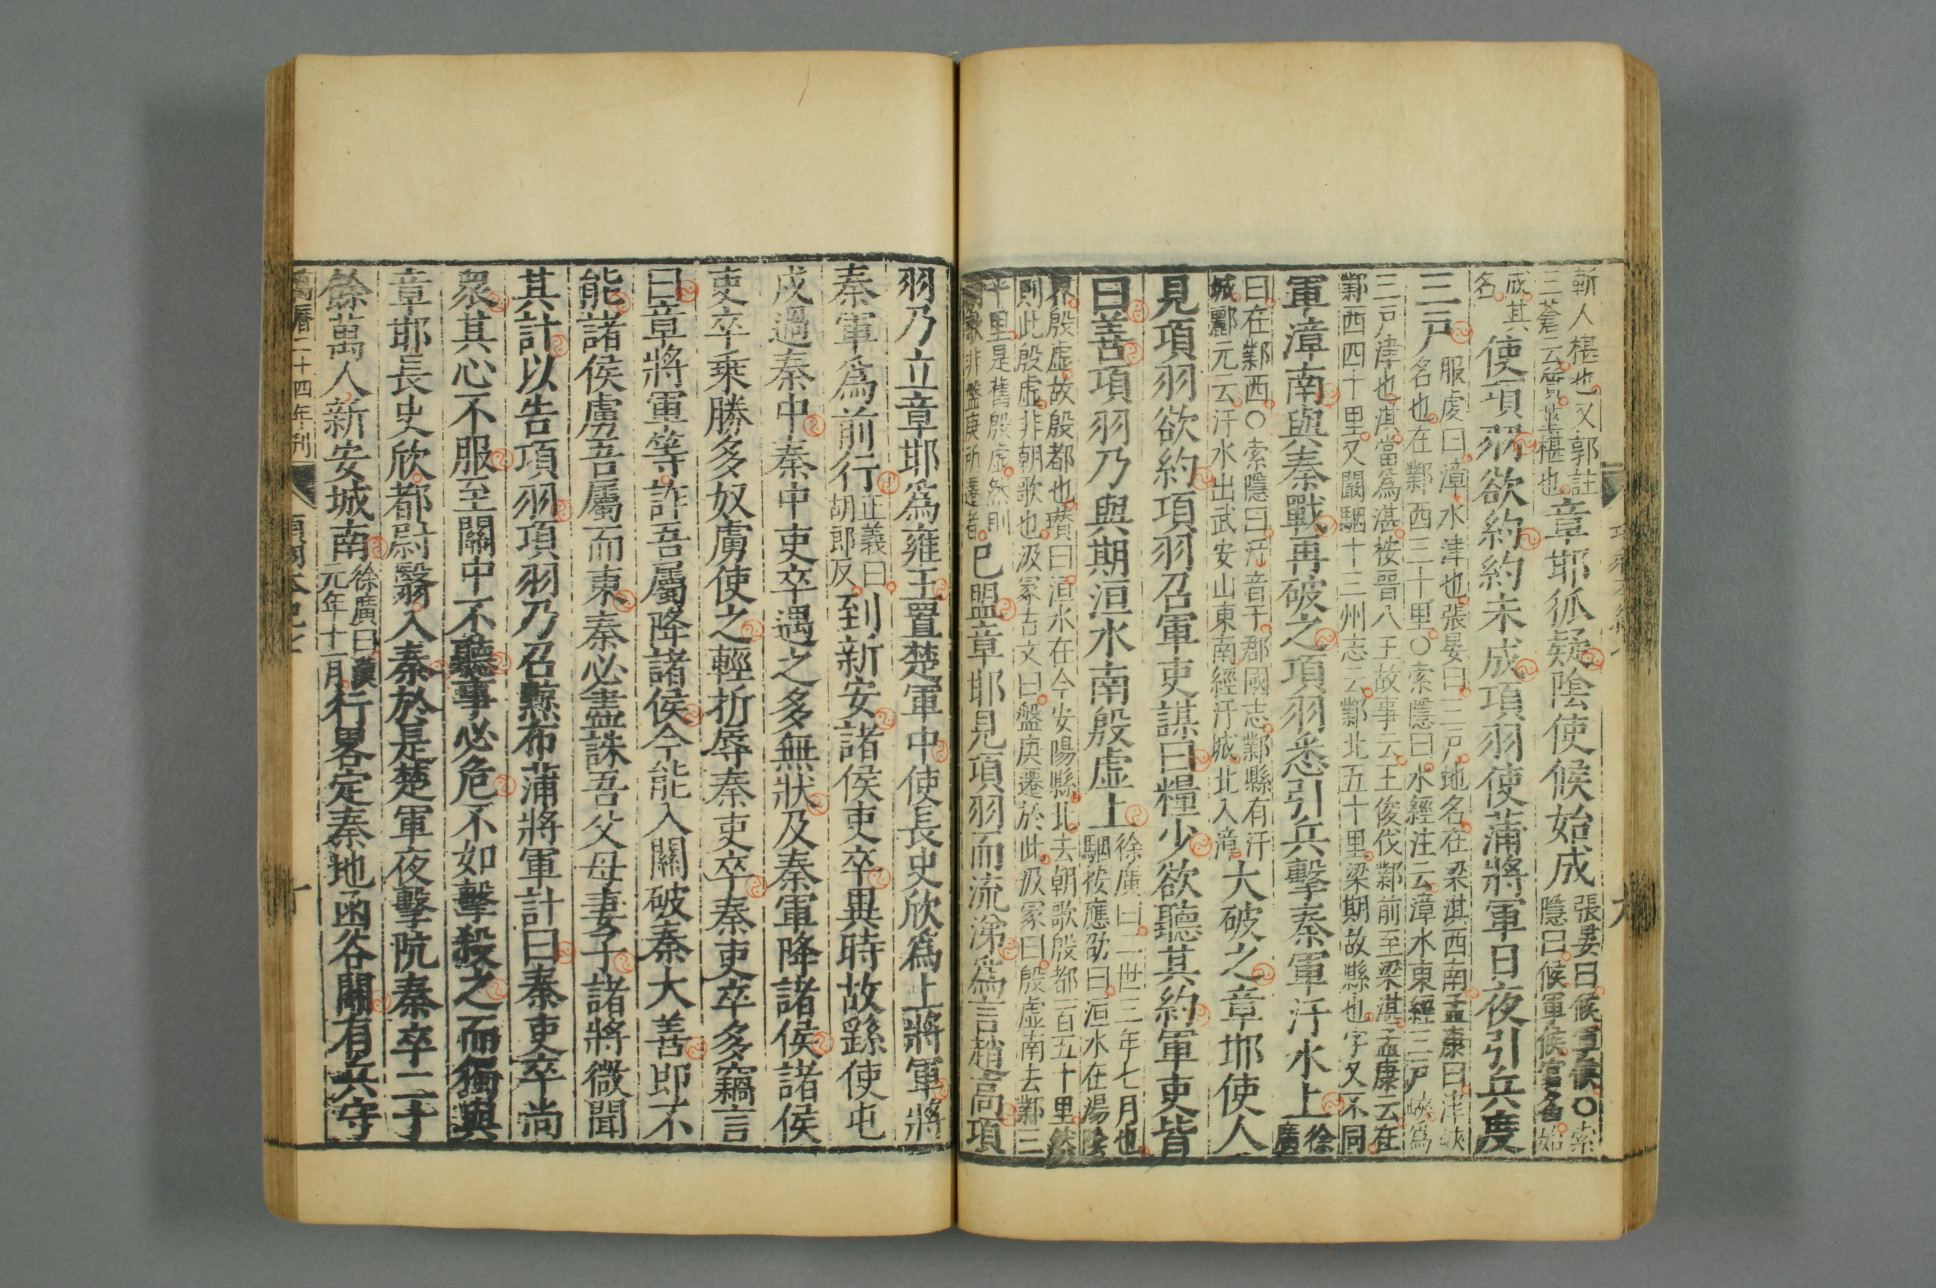 斬人椹也又郭註
三蒼云質莝椹也
章邯狐疑陰使候始成
張晏曰候軍候○索
隱曰候軍候官名始
成其
名
使項羽欲約約未成項羽使蒲將軍日夜引兵度
三戶
服虔曰漳水津也張晏曰三戶地名在梁淇西南孟康曰津峽
名也在鄴西三十里○索隱曰水經注云漳水東經三戶峽爲
三戶津也淇當爲湛按晉八王故事云王俊伐鄴前至梁湛孟康云在
鄴西四十里又闞駰十三州志云鄴北五十里梁期故縣也字又不同
軍漳南與秦戰再破之項羽悉引兵擊秦軍汙水上
徐
廣
曰在鄴西○索隱曰汙音于郡國志鄴縣有汙
城酈元云汙水出武安山東南經汙城北入漳
大破之章邯使人
見項羽欲約項羽召軍吏謀曰糧少欲聽其約軍吏皆
曰善項羽乃與期洹水南殷虛上
徐廣曰二世三年七月也
駰按應劭曰洹水在湯陰
界殷虛故殷都也瓚曰洹水在今安陽縣北去朝歌殷都一百五十里然
則此殷虛非朝歌也汲冢古文曰盤庚遷於此汲冢曰殷虛南去鄴三
十里是舊殷虛然則
朝歌非盤庚所遷者
已盟章邯見項羽而流涕爲言趙高項
羽乃立章邯爲雍王置楚軍中使長史欣爲上將軍將
秦軍爲前行
正義曰
胡郎反
到新安諸侯吏卒異時故繇使屯
戍過秦中秦中吏卒遇之多無狀及秦軍降諸侯諸侯
吏卒乘勝多奴虜使之輕折辱秦吏卒秦吏卒多竊言
曰章將軍等詐吾屬降諸侯今能入關破秦大善即不
能諸侯虜吾屬而東秦必盡誅吾父母妻子諸將微聞
其計以告項羽項羽乃召黥布蒲將軍計曰秦吏卒尚
衆其心不服至關中不聽事必危不如擊殺之而獨與
章邯長史欣都尉翳入秦於是楚軍夜擊阬秦卒二十
餘萬人新安城南
徐廣曰漢
元年十一月
行畧定秦地函谷關有兵守
萬曆二十四年刊
項羽本紀七
十